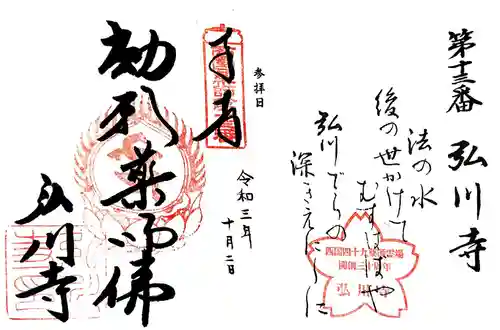 第十三番 弘川寺
法の水
後の世かけて
むすばばや
弘川でらの
深きえにしに
西国四十九薬師霊場
開創三十周年
弘川寺
参拝日
令和三年
十月二日
奉拝
薬師佛
弘川寺